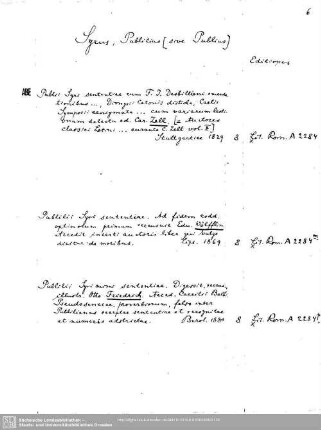 6
Syrus, Publicius (sive Publius)
Editiones
Publii Syri sententiae cum F. J. Desbillioni emen-
tionibus ..., Dionysii Catonis disticha, Caelii
Symposii aenigmata ... cum variarum lect.
delectu ed. Car. Zell. [= Auctores
classici Latini ... curante C. Zell vol. X]
Stuttgardiae 1829 8 Lit. Rom. A 2284
Publilii Syri sententiae. Ad fidem codd.
optimorum primum recensuit Edu. Wölfflin
Accedit incerti auctoris liber qui vulgo
dicitur de moribus. Lips. 1869 8 Lit. Rom. A 2284m
Publilii Syri mimi sententiae. Digessit, recens.,
illustr. Otto Friedrich. Acced. Caecilii Balbi,
Pseudosenecae, proverbiorum, falso inter
Publilianas receptae sententiae et recognitae
et numeris adstrictae. Berol. 1880 8 Lit. Rom. A 2284